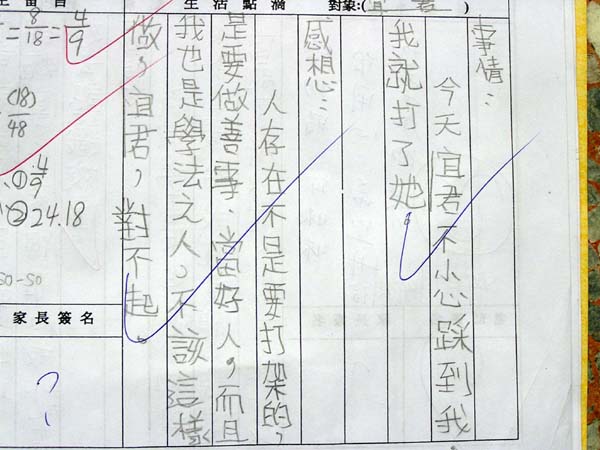 生活點滴
對象:(宜君)
事情：
今天宜君不小心踩到我，
我就打了她。
感想：
人存在不是要打架的，
是要做善事、當好人，而且
我也是學法之人，不該這樣
做，宜君，對不起。
= 8/18 = 4/9
(18)
48
① 4/9
② 24.18
50-50
家長簽名
?